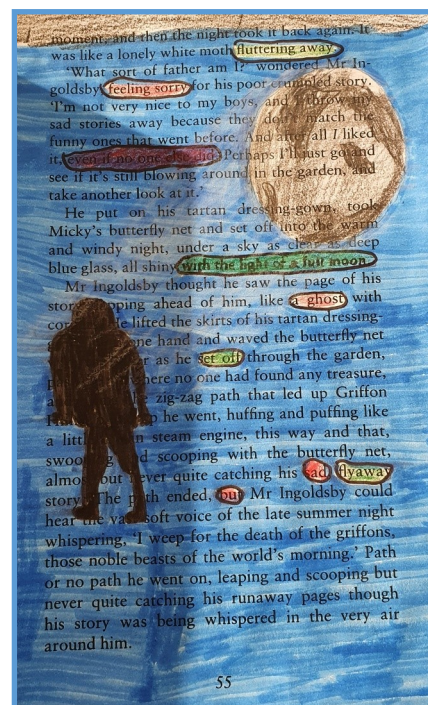 moment, and then the night took it back again. It
was like a lonely white moth fluttering away.
'What sort of father am I?' wondered Mr In-
goldsby feeling sorry for his poor crumpled story.
'I'm not very nice to my boys, and I throw my
sad stories away because they don't match the
funny ones that went before. And after all I liked
it, even if no one else did. Perhaps I'll just go and
see if it's still blowing around in the garden, and
take another look at it.'
He put on his tartan dressing-gown, took
Micky's butterfly net and set off into the warm
and windy night, under a sky as clear as deep
blue glass, all shiny with the light of a full moon.
Mr Ingoldsby thought he saw the page of his
story ping ahead of him, like a ghost with
he lifted the skirts of his tartan dressing-
one hand and waved the butterfly net
as he set off through the garden,
here no one had found any treasure,
zig-zag path that led up Griffon
he went, huffing and puffing like
a steam engine, this way and that,
and scooping with the butterfly net,
but never quite catching his sad flyaway
story. The path ended, but Mr Ingoldsby could
hear the vast soft voice of the late summer night
whispering, 'I weep for the death of the griffons,
those noble beasts of the world's morning.' Path
or no path he went on, leaping and scooping but
never quite catching his runaway pages though
his story was being whispered in the very air
around him.
55